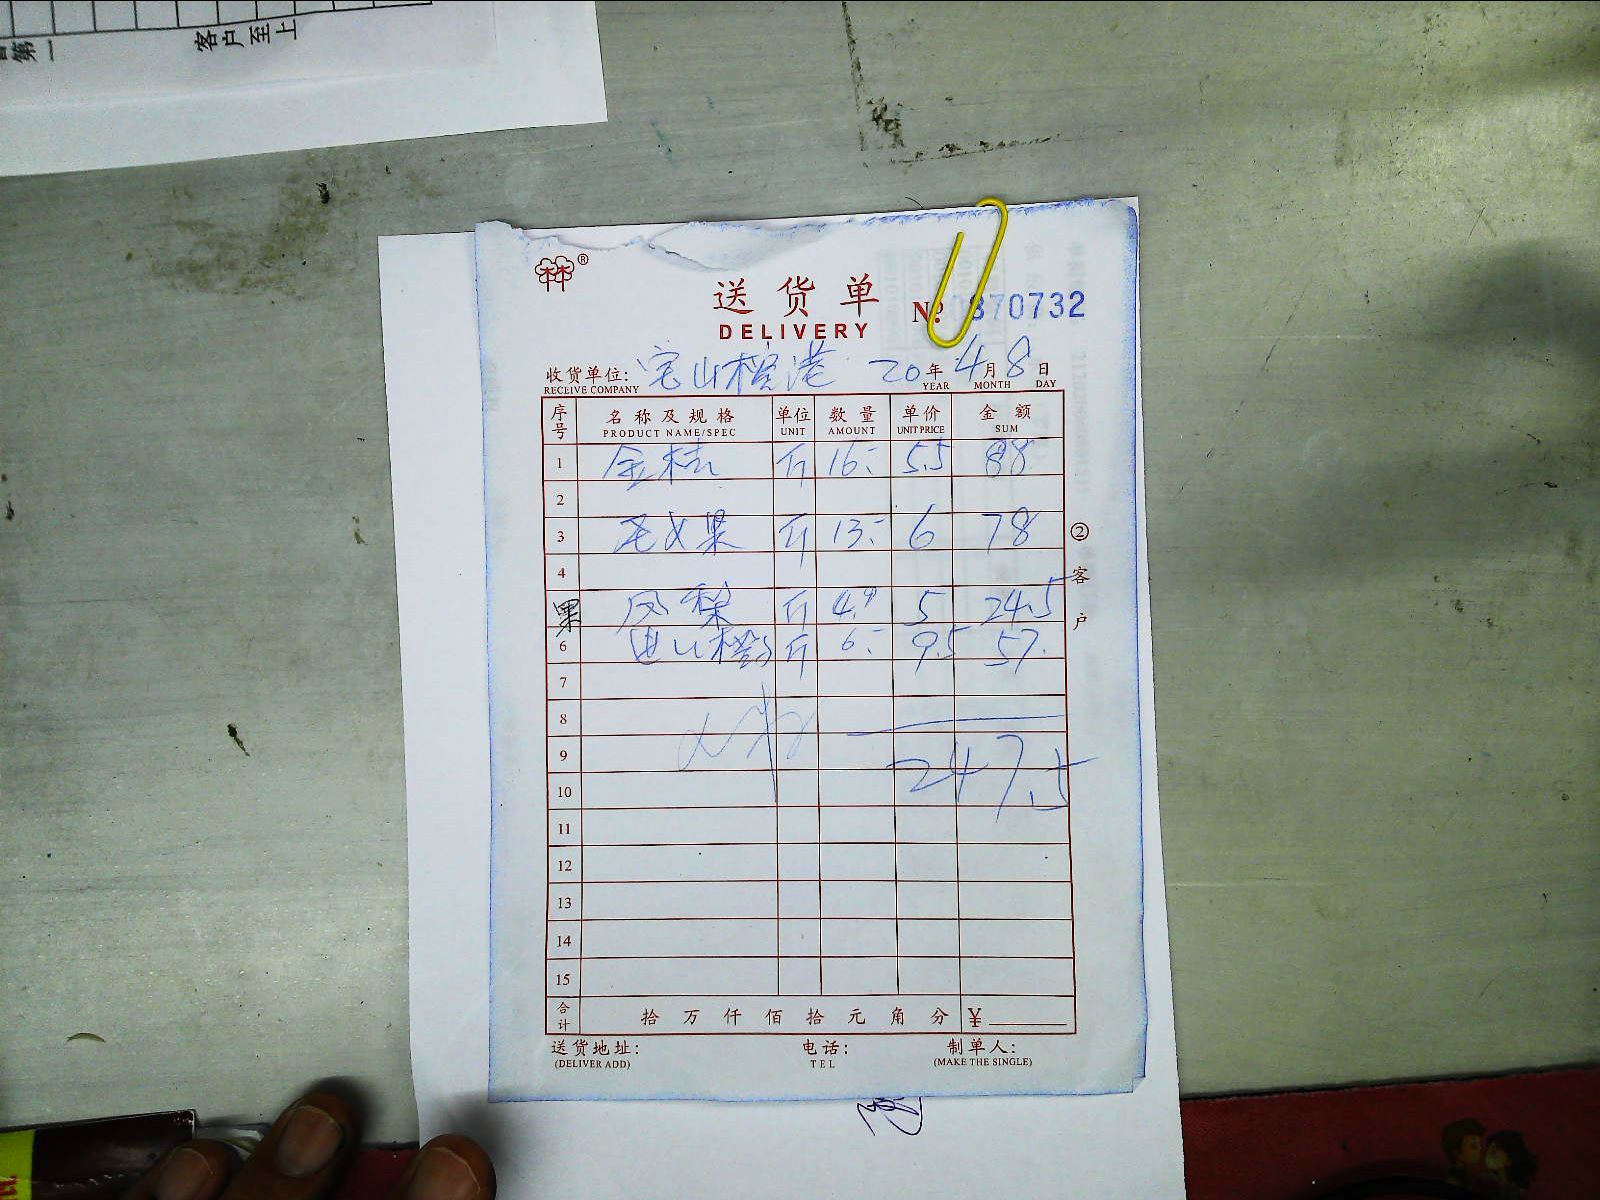 第一
客户至上
林
®
送货单
DELIVERY
№ 870732
收货单位: 宝山 港 20年4月8日
RECEIVE COMPANY YEAR MONTH DAY
序号 名称及规格 单位 数量 单价 金额
PRODUCT NAME/SPEC UNIT AMOUNT UNIT PRICE SUM
1 金桔 斤 16.- 5.5 88
2
3 火果 斤 13.- 6 78
4
果 凤梨 斤 4.9 5 24.5
6 斤 6.- 9.5 57.
7
8
9 247.5
10
11
12
13
14
15
合计 拾 万 仟 佰 拾 元 角 分 ¥
② 客户
送货地址: 电话: 制单人:
(DELIVER ADD) TEL (MAKE THE SINGLE)